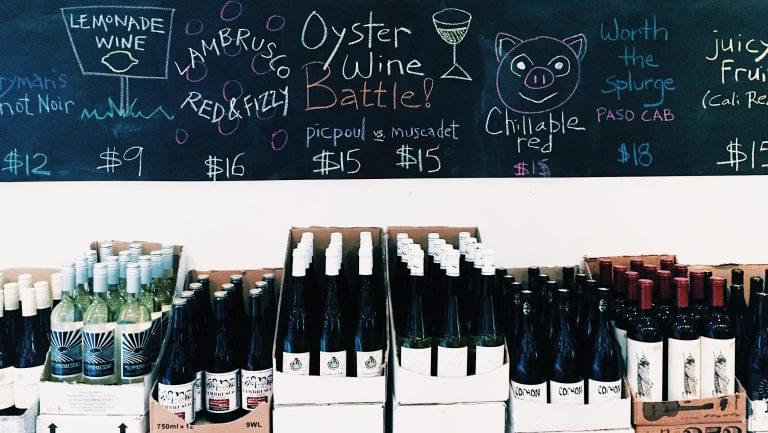 ryman's
not Noir
$12
LEMONADE
WINE
$9
LAMBRUSCO
RED & FIZZY
$16
Oyster
Wine
Battle!
picpoul vs. muscadet
$15 $15
Chillable
red
$15
Worth
the
splurge
PASO CAB
$18
juicy
Frui
(Cali Re
$15
COCHON
COCHON
COCHON
750ml x 12
9WL